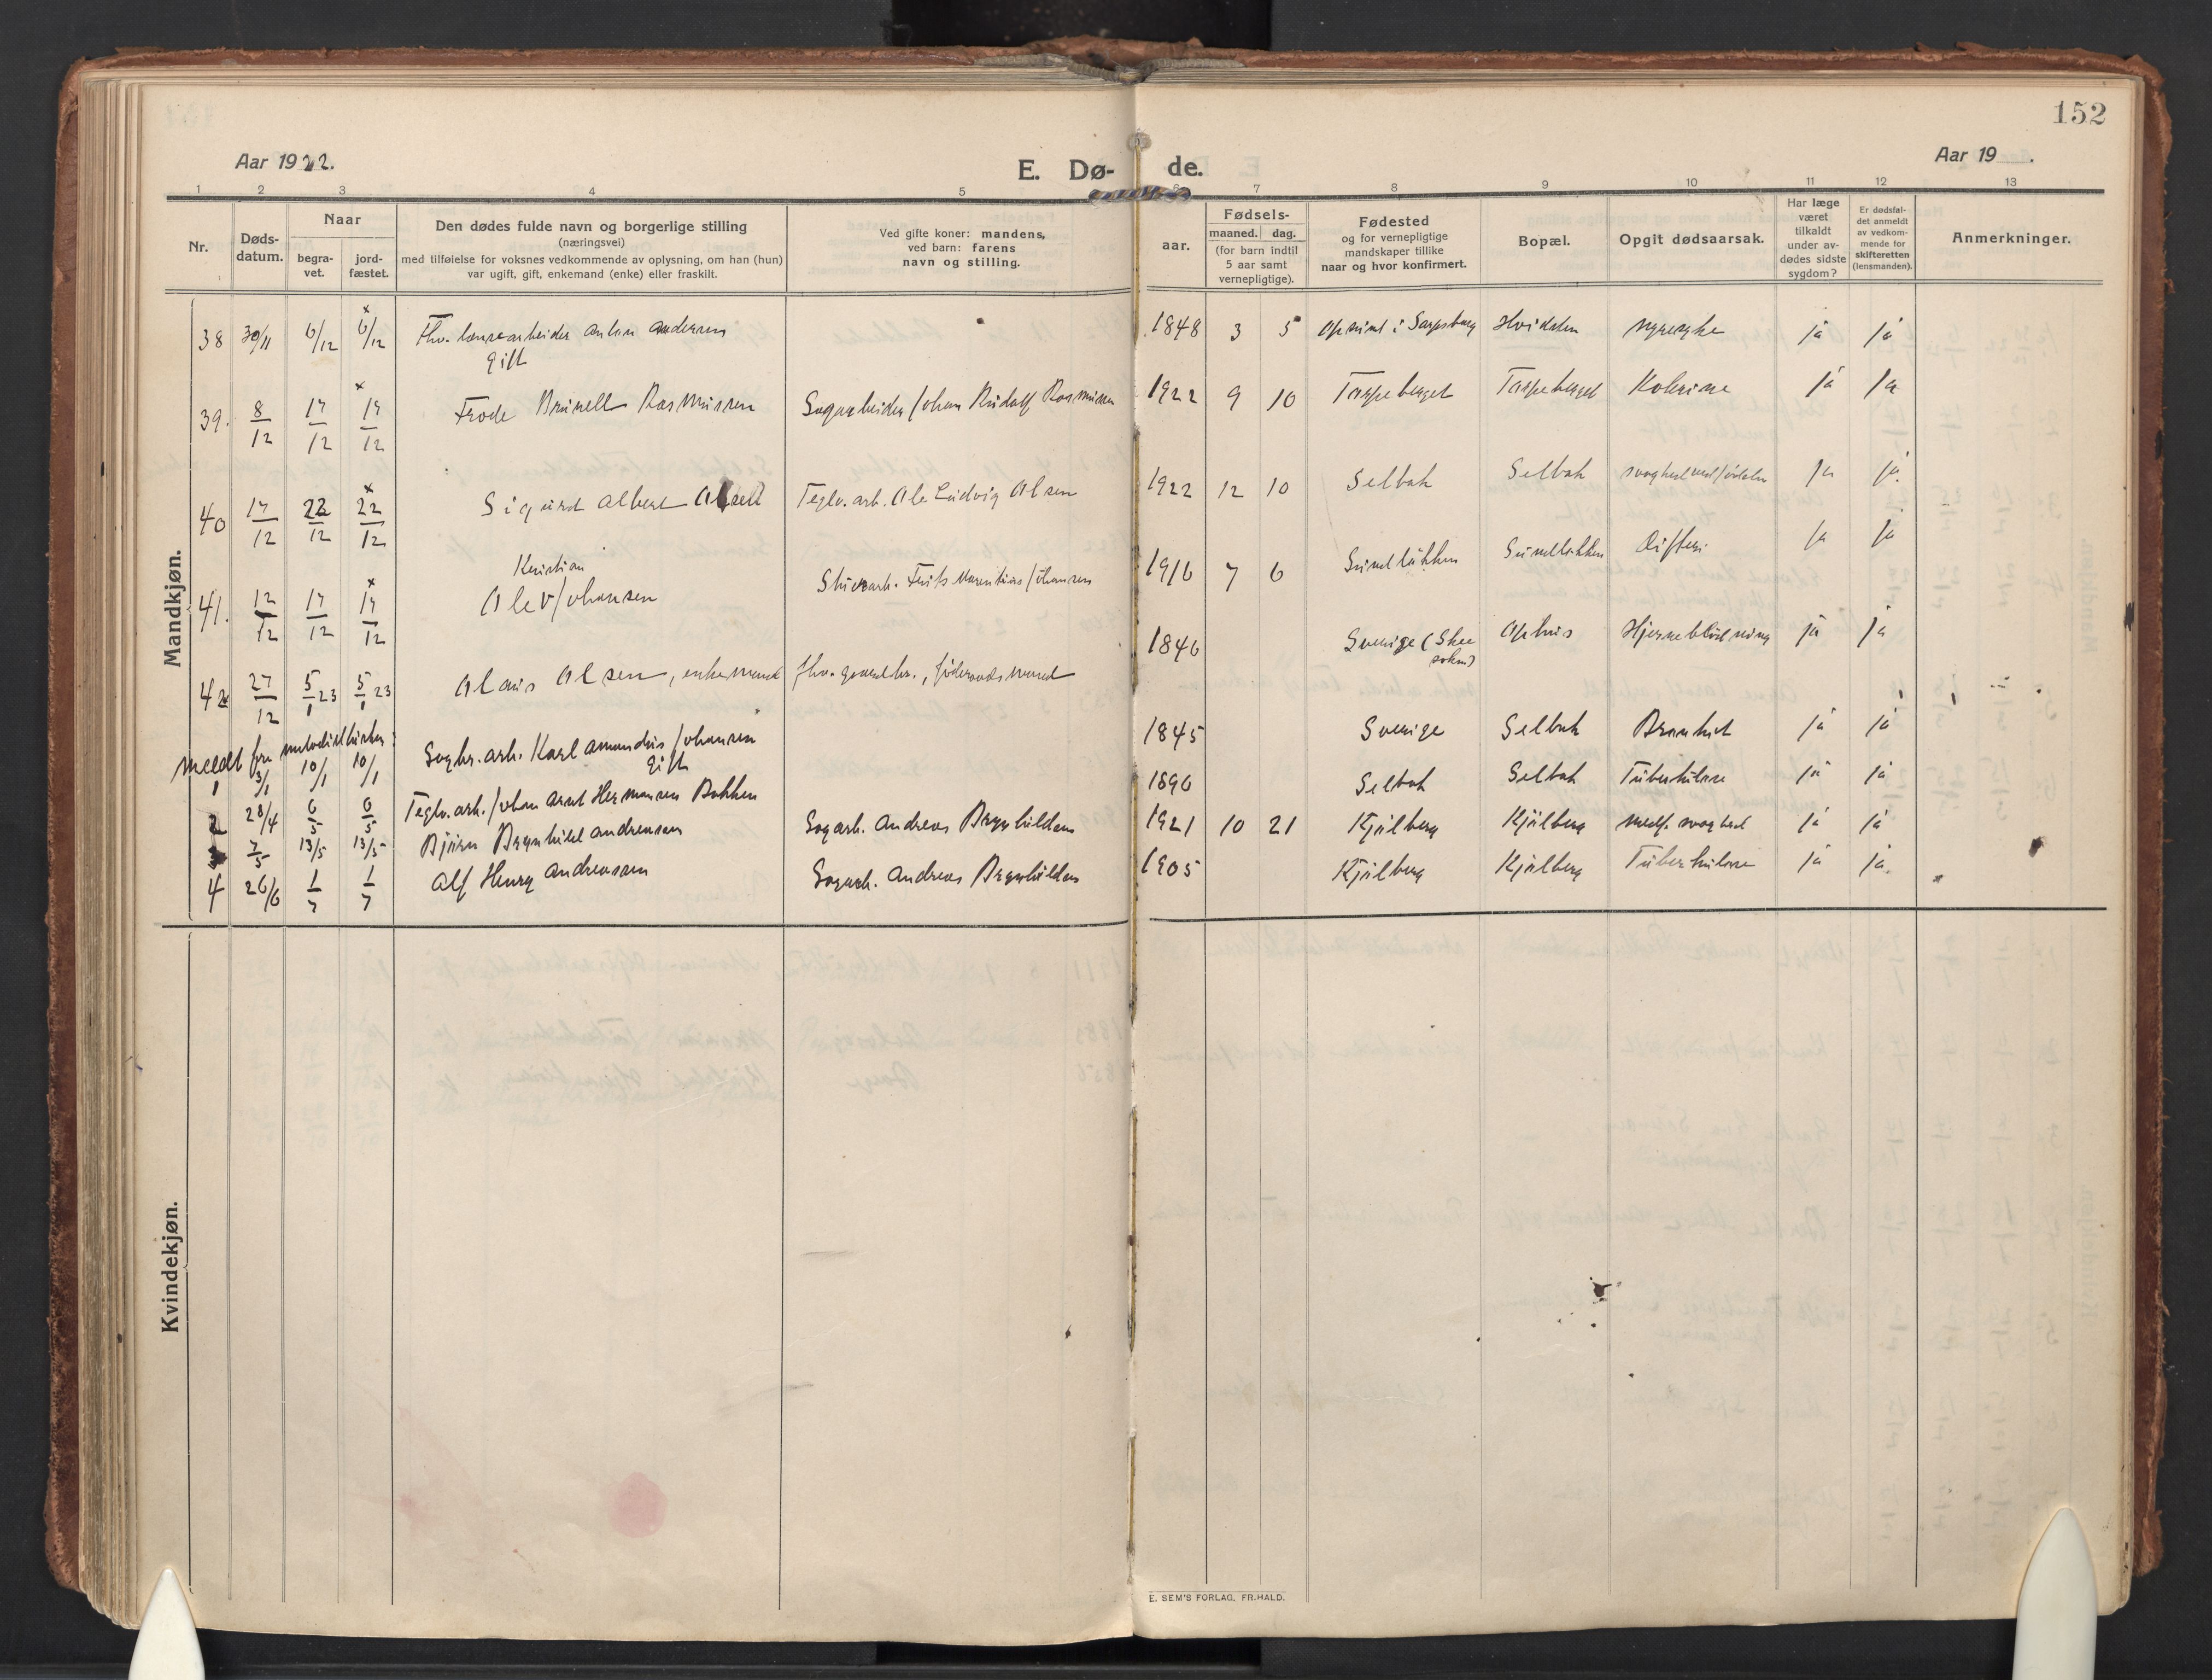 152
Aar 1922.
E. Dø- de.
Aar 19 .
1 2 3 4 5 6 7 8 9 10 11 12 13
Nr.
Døds-
datum.
Naar
begra-
vet.
jord-
fæstet.
Den dødes fulde navn og borgerlige stilling
(næringsvei)
med tilføielse for voksnes vedkommende av oplysning, om han (hun)
var ugift, gift, enkemand (enke) eller fraskilt.
Ved gifte koner: mandens,
ved barn: farens
navn og stilling.
aar.
Fødsels-
maaned. dag.
(for barn indtil
5 aar samt
vernepligtige).
Fødested
og for vernepligtige
mandskaper tillike
naar og hvor konfirmert.
Bopæl.
Opgit dødsaarsak.
Har læge
været
tilkaldt
under av-
dødes sidste
sygdom?
Er dødsfal-
det anmeldt
av vedkom-
mende for
skifteretten
(lensmanden).
Anmerkninger.
Mandkjøn.
38 30/11 6/12 x 6/12 Fhv. lænsearbeider Anton Andersen 1848 3 5 Opsund i Sarpsborg Hvidsten nyresyke ja ja
gift
39. 8/12 17/12 x 17/12 Frode Brunell Rasmussen Sagarbeider Johan Rudolf Rasmussen 1922 9 10 Torpeberget Torpeberget Kolerine ja ja
40 17/12 22/12 x 22/12 Sigurd Albert Olsen Teglv. arb. Ole Ludvig Olsen 1922 12 10 Selbak Selbak svaghet ved fødselen ja ja.
Kristian
41. 12/12 17/12 x 17/12 Olev Johansen Skivarb. Frits Marentius Johansen 1916 7 6 Sundløkken Sundløkken Difteri ja ja
42 27/12 5/1 23 5/1 23 Olaus Olsen, enkemand fhv. gaardbr., føderaadsmand 1846 Sverige (Skee Ophus Hjerneblødning ja ja
sokn)
meldt fra metodistkirken:
1 3/1 10/1 10/1 Sagbr. arb. Karl Amandus Johansen 1845 Sverige Selbak Bronkit ja ja
gift
2 28/4 6/5 6/5 Teglv. arb. Johan Arnt Hermansen Bakken 1890 Selbak Selbak Tuberkulose ja ja
3 7/5 13/5 13/5 Bjørn Brynhild Andreassen Sagarb. Andreas Brynhildsen 1921 10 21 Kjølberg Kjølberg medf. svaghet ja ja
4 26/6 1/7 1/7 Alf Henry Andreassen Sagarb. Andreas Brynhildsen 1905 Kjølberg Kjølberg Tuberkulose ja ja.
Kvindekjøn.
E. SEM'S FORLAG, FR.HALD.